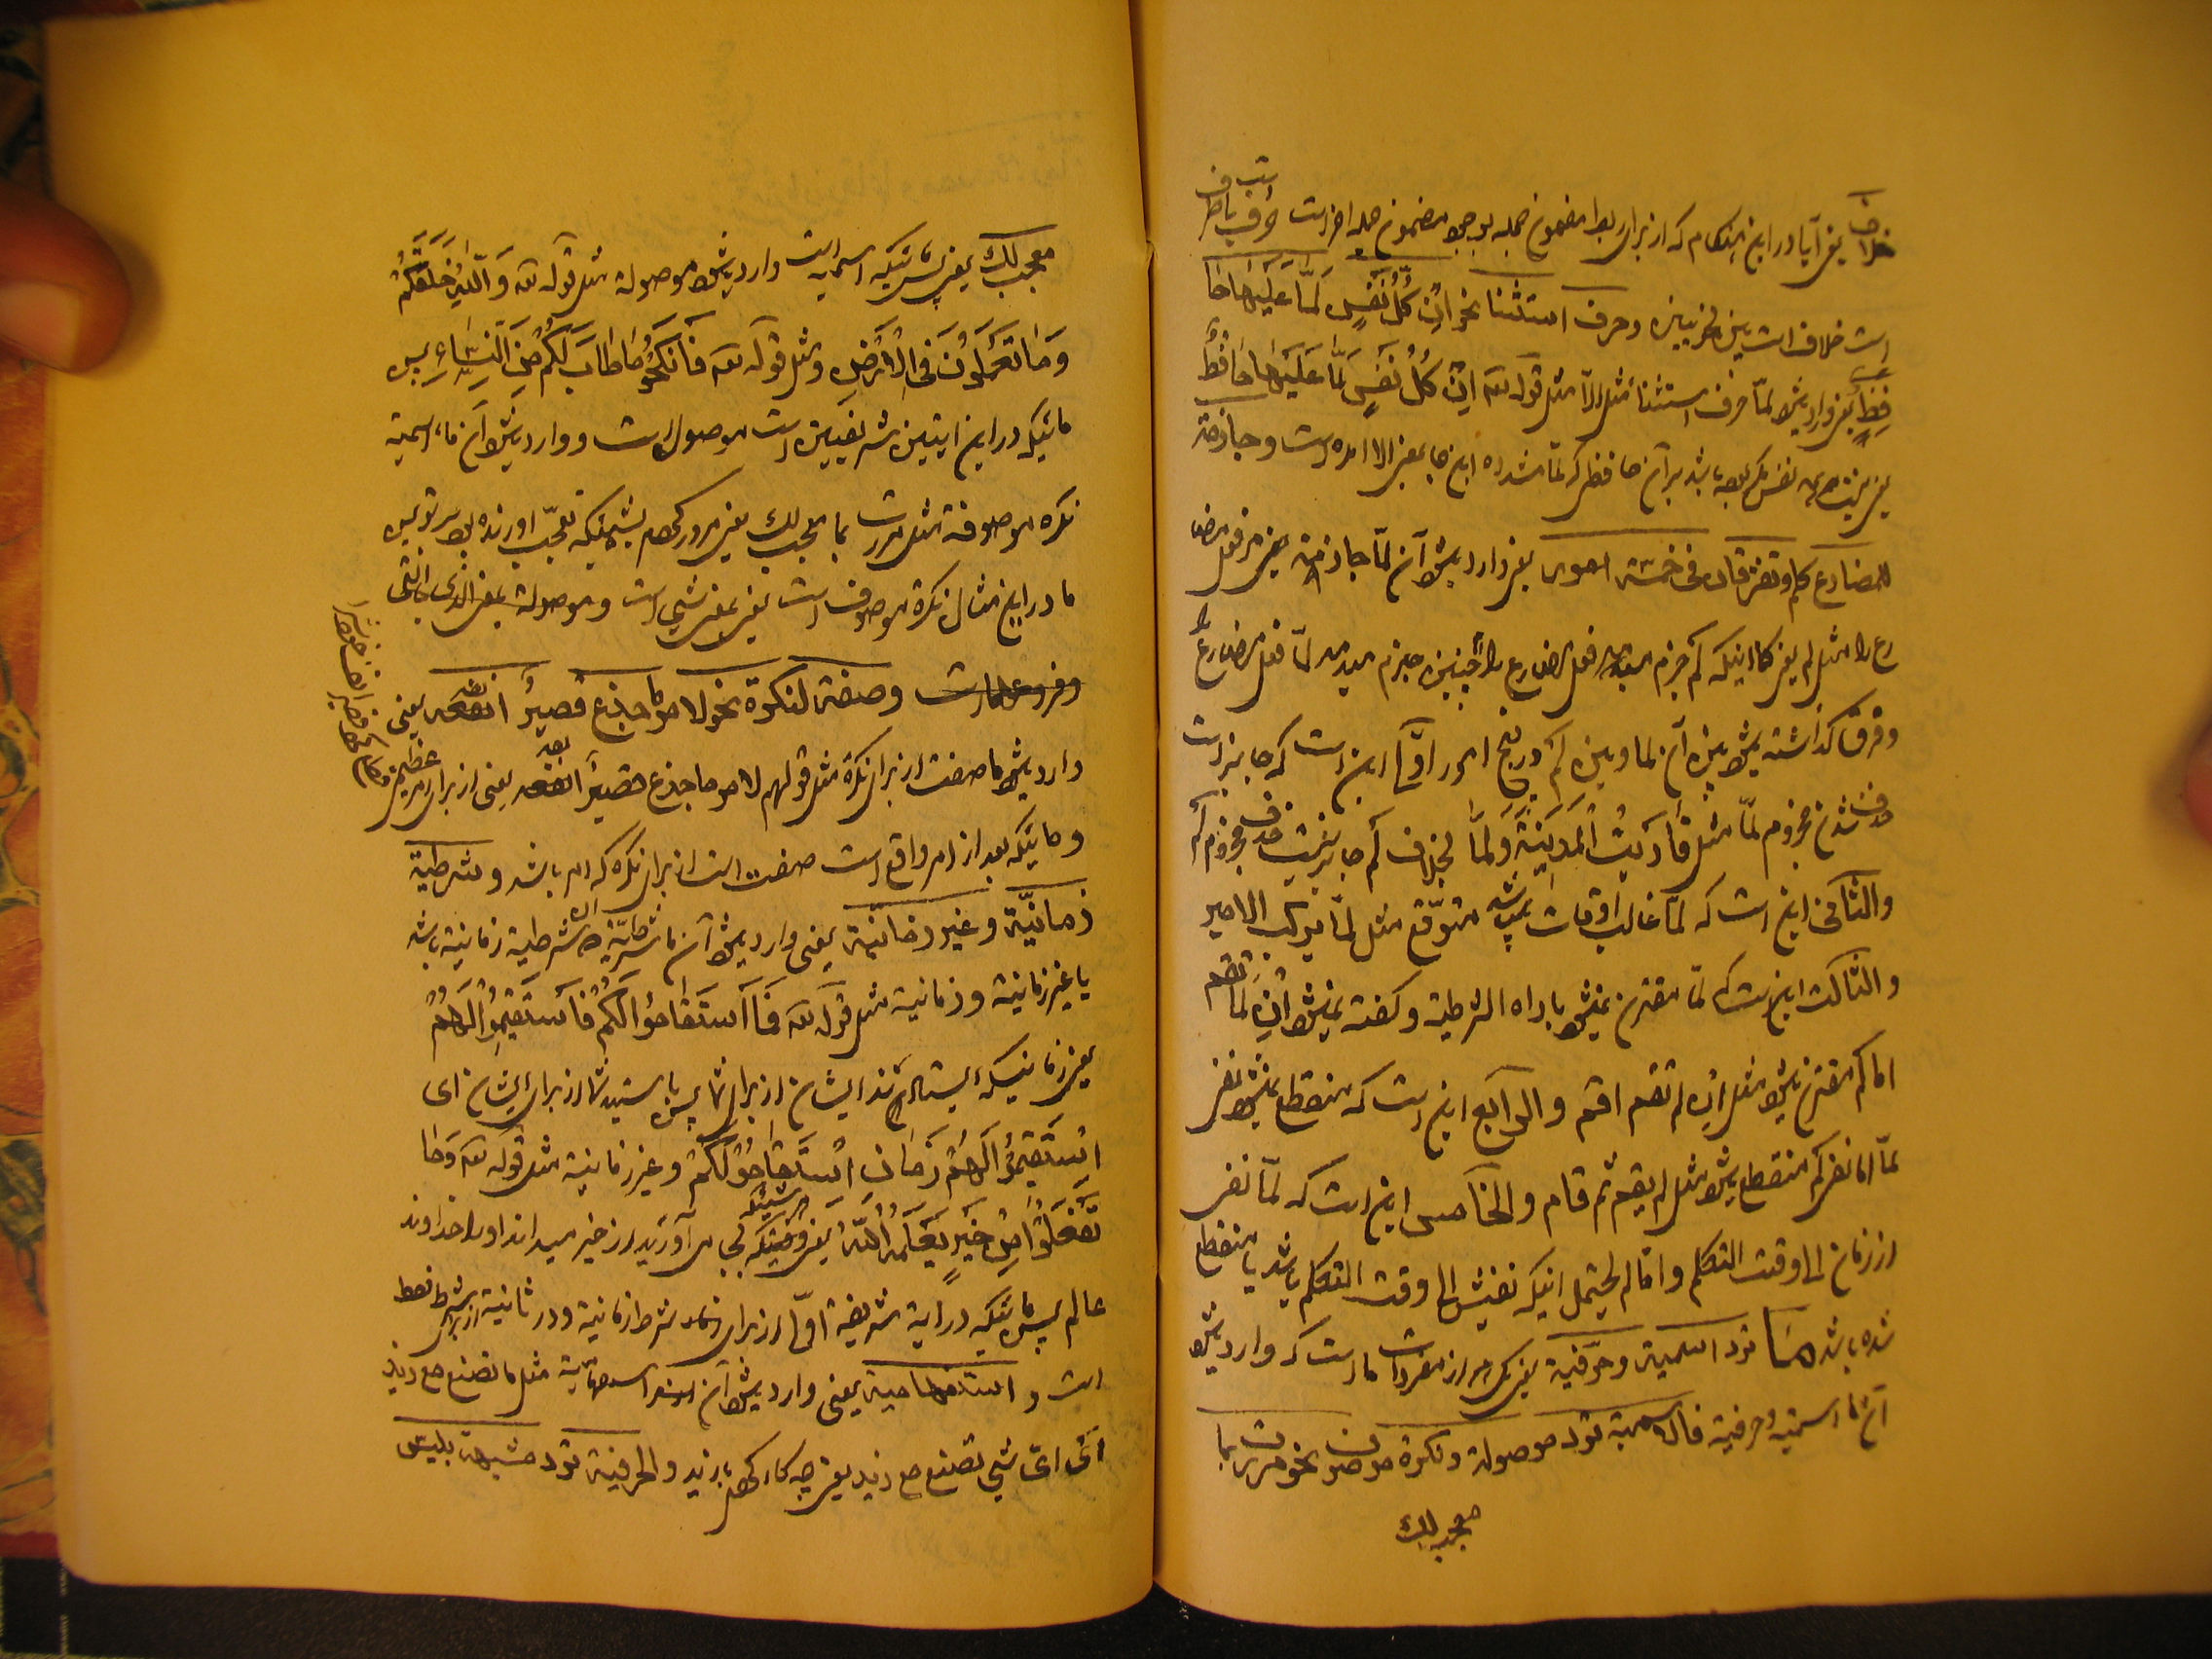 خلاف یعنی آیا در این هنگام که از برای ربط مضمون جمله بوجود مضمون جمله اخر است حرف یا ظرف است
است خلاف است بین نحویین و حرف استثنا نحو اِنْ کُلُّ نَفْسٍ لَمّٰا عَلَیْهٰا حٰا
فِظٌ یعنی وارد میشود لمّا حرف استثنا مثل الّا مثل قوله تعه اِنْ کُلُّ نَفْسٍ لَمّٰا عَلَیْهٰا حٰافِظٌ
یعنی نیست نفس مگر باشد بر آن حافظ که لمّا مشدده این جا بمعنی الا امده است و جازمة
للمضارع کلم و تفترقان فی خمسة امور یعنی وارد میشود آن لمّا جازمة یعنی مر فعل مضا
رع را مثل لم یعنی کما اینکه لم جزم میدهد فعل مضارع را همچنین جزم میدهد لمّا فعل مضارع را
و فرق گذاشته میشود بین آن لما و بین لم در پنج امور اوّل این است که جایز است
حذف شدن مجزوم لمّا مثل قٰارَبْتُ الْمَدینَةَ وَ لَمّٰا بخلاف لم جایز نیست حذف مجزوم لم
و الثانی این است که لمّا غالب اوقات میباشد متوقّع مثل لمّا یرکب الامیر
و الثالث این است که لمّا مقترن نمیشود باداه الشرطیة و گفته نمیشود اِنْ لَمّٰا تقم
اما لم مقترن میشود مثل اِنْ لم تقم اقم و الرابع این است که منقطع نمیشود نفی
لمّا اما نفی لم منقطع میشود مثل لم یقم ثم قام و الخامس این است که لمّا نفی
از زمان الی وقت التکلم و امّا لم یحتمل اینکه نفیش الی وقت التکلم باشد یا منقطع
شده باشد مٰا ترد اسمیة و حرفیة یعنی یک امر از مفردات ما است که وارد میشود
آن ما اسمیة و حرفیة فالاسمیة ترد موصولة و نکرة موصوفة نحو مررت بما
معجب لك
معجب لك یعنی اسمیه است وارد میشود موصولة مثل قوله تعه وَ اللّٰهُ خَلَقَکُمْ
وَ مٰا تَعْمَلُونَ فِی الْاَرْضِ و مثل قوله تعه فَانْکِحُوا مٰا طٰابَ لَکُمْ مِنَ النِّسٰاءِ پس
مائیکه در این ایتین شریفیین است موصول است و وارد میشود آن ما اسمیة
نکره موصوفة مثل مررت بما معجب لك یعنی مرور کردم بشیئیکه تعجب اورنده بود مر تو پس
ما در این مثال نکرة موصوف است یعنی بمعنی شیی است و موصولة بمعنی الذی و التی
و صفة لنکرة نحو لامر ما جذع قصیرٌ انفه یعنی
وارد میشود ما صفت از برای نکرة مثل قولهم لامر ما جذع قصیرٌ انفه یعنی از برای امر عظیم
و مائیکه بعد از امر واقع است صفت است از برای نکره که امر باشد و شرطیة
زمانیّة و غیر زمانیّة یعنی وارد میشود آن ما شرطیّة شرطیة زمانیة باشد
یا غیر زمانیة و زمانیة مثل قوله تعه فَمَا اسْتَقٰامُوا لَکُمْ فَاسْتَقیمُوا لَهُمْ
یعنی زمانیکه ایستادند ایشان از برای شما پس بایستید شما از برای ایشان ای
اِسْتَقیمُوا لَهُمْ زَمٰانَ اسْتَقٰامُوا لَکُمْ و غیر زمانیة مثل قوله تعه وَ مٰا
تَفْعَلُوا مِنْ خَیْرٍ یَعْلَمْهُ اللّٰهُ یعنی هر شیئیکه بجا می آورید از خیر میداند او را خداوند
عالم پس مائیکه در ایة شریفة اوّل از برای شرط زمانیة و در ثانیة از برای شرط فقط
است و استفهامیة یعنی وارد میشود آن استفهامیّة مثل ما تصنع مع زید
ای ایّ شیئ تصنع مع زید یعنی چه کار با زید و الحرفیة ترد مشبهة بلیس